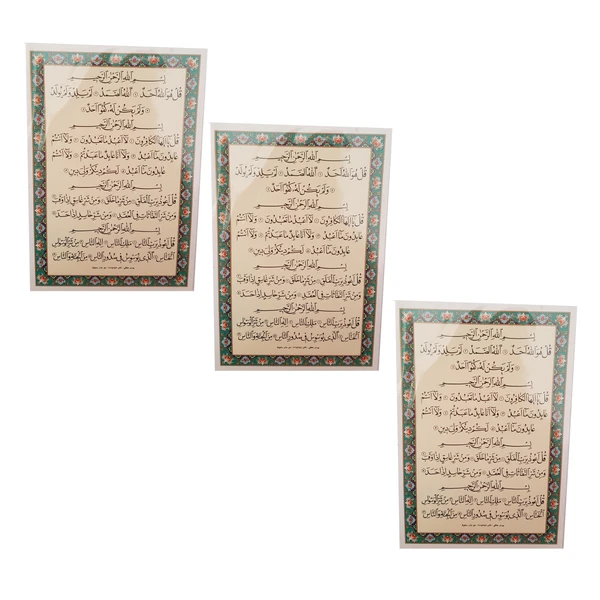 بِسْمِ اللهِ الرَّحْمٰنِ الرَّحِيمِ
قُلْ هُوَ اللهُ اَحَدٌ اَللهُ الصَّمَدُ لَمْ يَلِدْ وَلَمْ يُولَدْ
وَلَمْ يَكُنْ لَهُ كُفُوًا اَحَدٌ
بِسْمِ اللهِ الرَّحْمٰنِ الرَّحِيمِ
قُلْ يَا اَيُّهَا الْكَافِرُونَ لَا اَعْبُدُ مَا تَعْبُدُونَ وَلَا اَنْتُمْ
عَابِدُونَ مَا اَعْبُدُ وَلَا اَنَا عَابِدٌ مَا عَبَدْتُمْ وَلَا اَنْتُمْ
عَابِدُونَ مَا اَعْبُدُ لَكُمْ دِينُكُمْ وَلِيَ دِينِ
بِسْمِ اللهِ الرَّحْمٰنِ الرَّحِيمِ
قُلْ اَعُوذُ بِرَبِّ الْفَلَقِ مِنْ شَرِّ مَا خَلَقَ وَمِنْ شَرِّ غَاسِقٍ اِذَا وَقَبَ
وَمِنْ شَرِّ النَّفَّاثَاتِ فِي الْعُقَدِ وَمِنْ شَرِّ حَاسِدٍ اِذَا حَسَدَ
بِسْمِ اللهِ الرَّحْمٰنِ الرَّحِيمِ
قُلْ اَعُوذُ بِرَبِّ النَّاسِ مَلِكِ النَّاسِ اِلٰهِ النَّاسِ مِنْ شَرِّ الْوَسْوَاسِ
الْخَنَّاسِ اَلَّذِي يُوَسْوِسُ فِي صُدُورِ النَّاسِ مِنَ الْجِنَّةِ وَالنَّاسِ
بِسْمِ اللهِ الرَّحْمٰنِ الرَّحِيمِ
قُلْ هُوَ اللهُ اَحَدٌ اَللهُ الصَّمَدُ لَمْ يَلِدْ وَلَمْ يُولَدْ
وَلَمْ يَكُنْ لَهُ كُفُوًا اَحَدٌ
بِسْمِ اللهِ الرَّحْمٰنِ الرَّحِيمِ
قُلْ يَا اَيُّهَا الْكَافِرُونَ لَا اَعْبُدُ مَا تَعْبُدُونَ وَلَا اَنْتُمْ
عَابِدُونَ مَا اَعْبُدُ وَلَا اَنَا عَابِدٌ مَا عَبَدْتُمْ وَلَا اَنْتُمْ
عَابِدُونَ مَا اَعْبُدُ لَكُمْ دِينُكُمْ وَلِيَ دِينِ
بِسْمِ اللهِ الرَّحْمٰنِ الرَّحِيمِ
قُلْ اَعُوذُ بِرَبِّ الْفَلَقِ مِنْ شَرِّ مَا خَلَقَ وَمِنْ شَرِّ غَاسِقٍ اِذَا وَقَبَ
وَمِنْ شَرِّ النَّفَّاثَاتِ فِي الْعُقَدِ وَمِنْ شَرِّ حَاسِدٍ اِذَا حَسَدَ
بِسْمِ اللهِ الرَّحْمٰنِ الرَّحِيمِ
قُلْ اَعُوذُ بِرَبِّ النَّاسِ مَلِكِ النَّاسِ اِلٰهِ النَّاسِ مِنْ شَرِّ الْوَسْوَاسِ
الْخَنَّاسِ اَلَّذِي يُوَسْوِسُ فِي صُدُورِ النَّاسِ مِنَ الْجِنَّةِ وَالنَّاسِ
بِسْمِ اللهِ الرَّحْمٰنِ الرَّحِيمِ
قُلْ هُوَ اللهُ اَحَدٌ اَللهُ الصَّمَدُ لَمْ يَلِدْ وَلَمْ يُولَدْ
وَلَمْ يَكُنْ لَهُ كُفُوًا اَحَدٌ
بِسْمِ اللهِ الرَّحْمٰنِ الرَّحِيمِ
قُلْ يَا اَيُّهَا الْكَافِرُونَ لَا اَعْبُدُ مَا تَعْبُدُونَ وَلَا اَنْتُمْ
عَابِدُونَ مَا اَعْبُدُ وَلَا اَنَا عَابِدٌ مَا عَبَدْتُمْ وَلَا اَنْتُمْ
عَابِدُونَ مَا اَعْبُدُ لَكُمْ دِينُكُمْ وَلِيَ دِينِ
بِسْمِ اللهِ الرَّحْمٰنِ الرَّحِيمِ
قُلْ اَعُوذُ بِرَبِّ الْفَلَقِ مِنْ شَرِّ مَا خَلَقَ وَمِنْ شَرِّ غَاسِقٍ اِذَا وَقَبَ
وَمِنْ شَرِّ النَّفَّاثَاتِ فِي الْعُقَدِ وَمِنْ شَرِّ حَاسِدٍ اِذَا حَسَدَ
بِسْمِ اللهِ الرَّحْمٰنِ الرَّحِيمِ
قُلْ اَعُوذُ بِرَبِّ النَّاسِ مَلِكِ النَّاسِ اِلٰهِ النَّاسِ مِنْ شَرِّ الْوَسْوَاسِ
الْخَنَّاسِ اَلَّذِي يُوَسْوِسُ فِي صُدُورِ النَّاسِ مِنَ الْجِنَّةِ وَالنَّاسِ